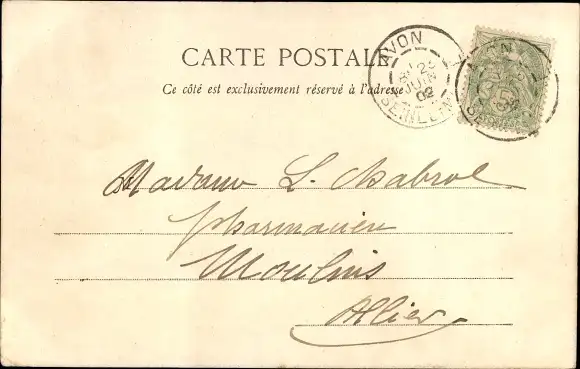 CARTE POSTALE
Ce côté est exclusivement réservé à l'adresse
AVON
25
JUIN
02
Madame L. Chabrol
pharmacien
Moulins
Allier